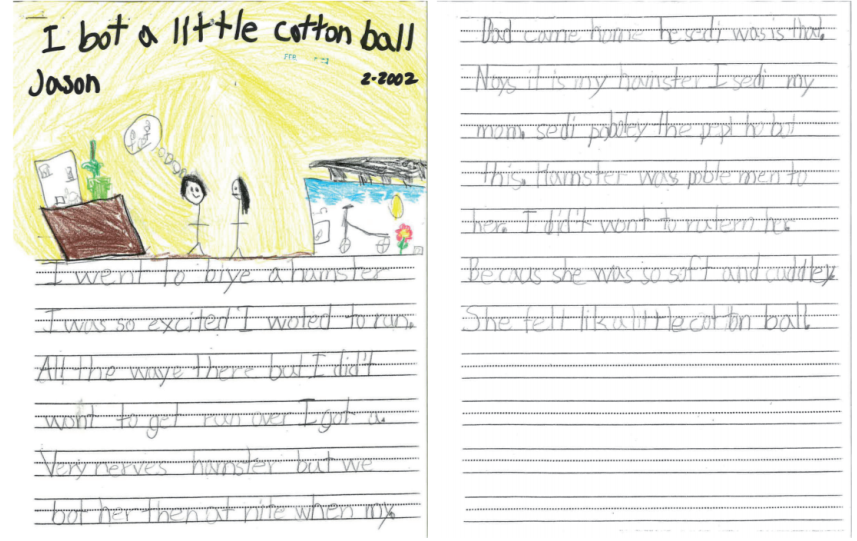 I bot a little cotton ball
Jason
2-2002
I went to biye a hamster
I was so excited I woted to run.
All the waye there but I did't
wont to get run over I got a.
Very nerves hamster but we
bot her then at nite when my
Dad came home he sedi was is that.
Nays it is my hamster I sedi my
mom. sedi the ho bot
this. Hamster was men to
her. I did't wont to rutern her.
Becaus she was so soft and cuddley.
She felt lik a little cotton ball.